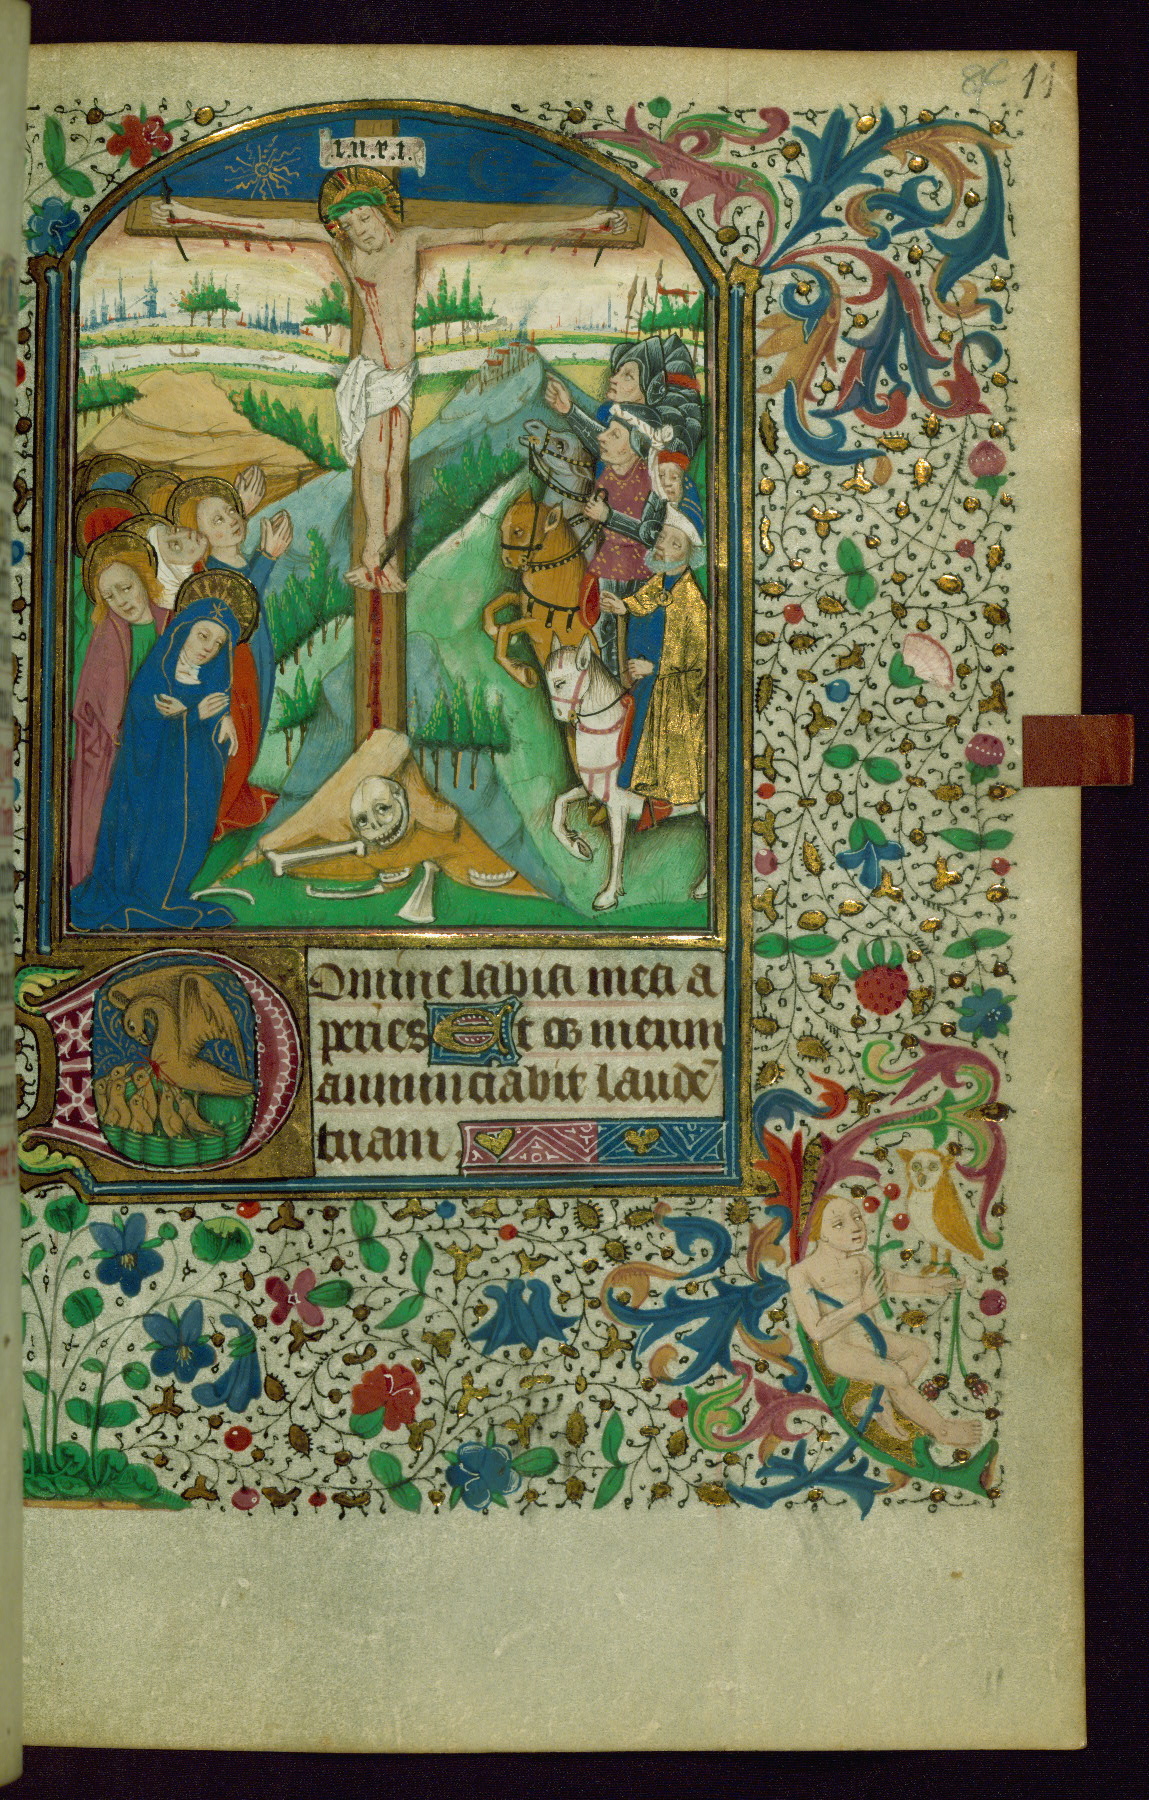 11
.i.n.r.i.
Domine labia mea a
peries Et os meum
annunciabit laudē
tuam.